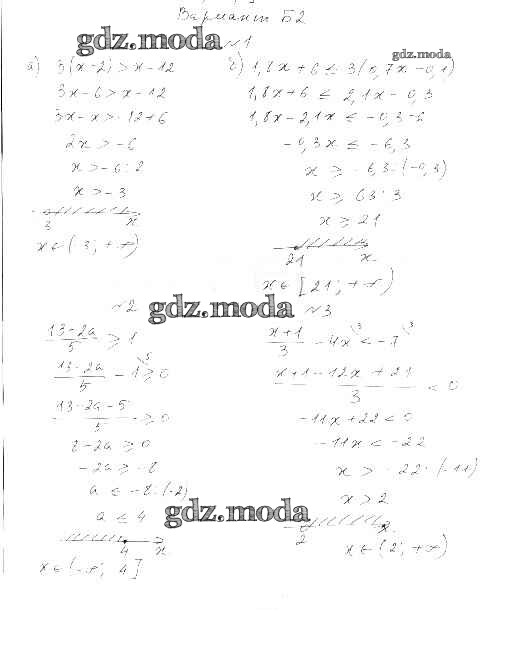 Вариант Б2
gdz.moda
№1
gdz.moda
а) 3(x-2) > x-12
3x-6 > x-12
3x-x > -12+6
2x > -6
x > -6:2
x > -3
3 x
x ∈ (3; +∞)
б) 1,8x+6 ≤ 3(0,7x-0,1)
1,8x+6 ≤ 2,1x-0,3
1,8x-2,1x ≤ -0,3-6
-0,3x ≤ -6,3
x ≥ -6,3:(-0,3)
x ≥ 63:3
x ≥ 21
21 x
x ∈ [21; +∞)
gdz.moda
№2
13-2a / 5 ≥ 1
13-2a / 5 - 1 ≥ 0
13-2a-5 / 5 ≥ 0
8-2a ≥ 0
-2a ≥ -8
a ≤ -8:(-2)
a ≤ 4
4 x
x ∈ (-∞; 4]
№3
x+1 / 3 - 4x < -7
x+1-12x+21 / 3 < 0
-11x+22 < 0
-11x < -22
x > -22:(-11)
x > 2
gdz.moda
2 x
x ∈ (2; +∞)